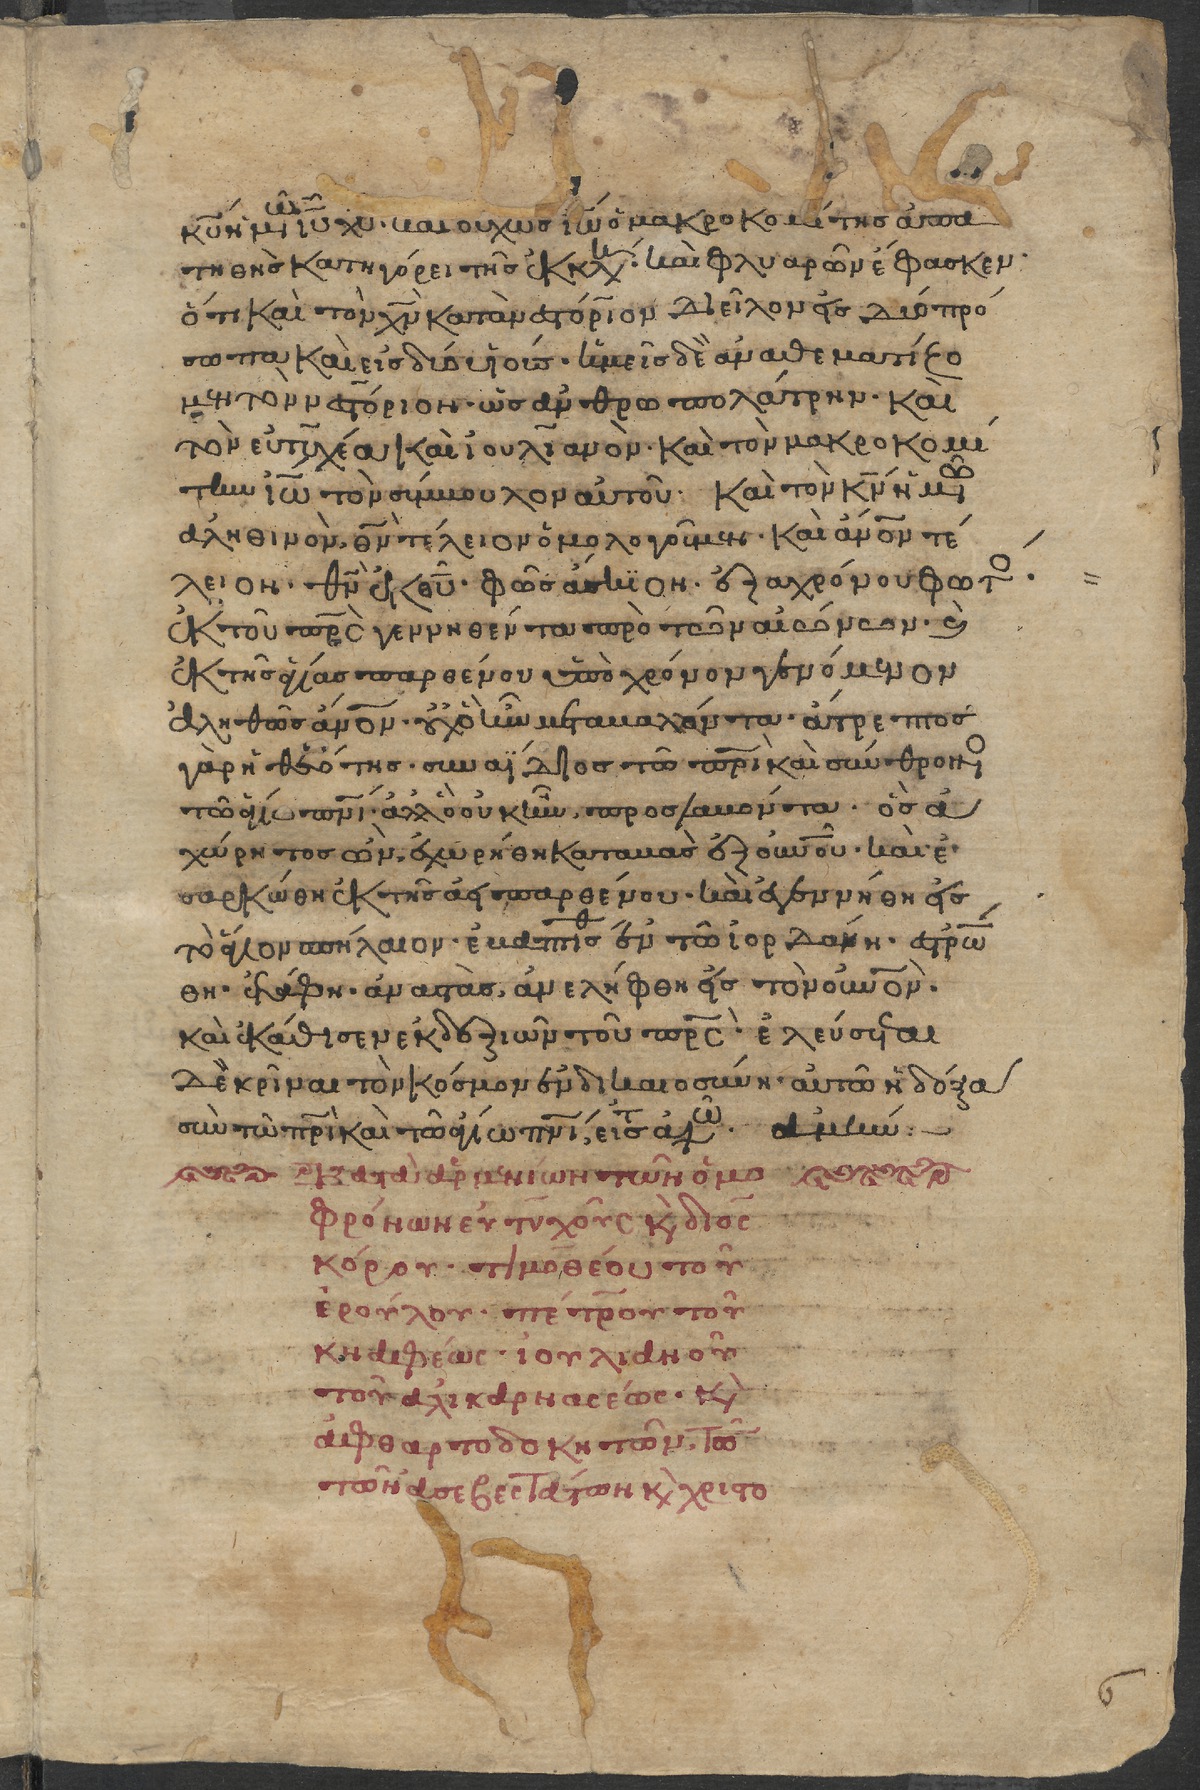 κῡ ἡμῶν ῑῡ χ̄ῡ· και οὐχ ὡς ἰω̄ ὁ μακροκομίτης ἀπα
τηθεὶς κατηγόρει τῆς ἐκκλη· καὶ φλυαρῶν ἔφασκεν·
ὅτι καὶ τὸν χ̄ν̄ κατὰ νεστόριον διεῖλον εἰς δύο πρό
σωπα καὶ εἰς δύο υἱούς· ἡμεῖς δὲ ἀναθεματίζο
μεν τὸν νεστόριον· ὡς ἀνθρωπολάτρην· καὶ
τὸν εὐτυχέα καὶ ἰουλιανὸν· καὶ τὸν μακροκομί
την ἰω̄ τὸν σύμβουλον αὐτοῦ· καὶ τὸν κ̄ν̄ ἡμῶ
ἀληθινὸν θ̄ν̄ τέλειον ὁμολογοῦμεν· καὶ ἄν̄ο̄ν τέ
λειον· θ̄ν̄ ἐκ θ̄ῡ· φῶς ἀΐδιον· ἐξ ἀχρόνου φωτο·
ἐκ τοῦ π̄ρ̄ς γεννηθέντα πρὸ τῶν αἰώνων· καὶ
ἐκ τῆς ἁγίας παρθένου ὑπὸ χρόνον γενόμενον
ἀληθῶς ἄν̄ο̄ν· οὐχ ὃ ἦν μεταβαλόντα· ἄτρεπτος
γὰρ ἡ θεότης· συναΐδιος τῶ π̄ρ̄ι καὶ σύνθρονο
τῶ ἁγίω π̄ν̄ι· ἀλλ' ὃ οὐκ ἦν, προσλαβόντα· ὃς ἀ
χώρητος ὢν, ἐχωρήθη καταβὰς ἐξ οὐν̄ο̄ῡ· καὶ ἐ
σαρκώθη ἐκ τῆς ἁγ παρθένου· καὶ ἐγεννήθη εἰς
τὸ ἅγιον σπήλαιον· ἐβαπτίσθ ἐν τῶ ἰορδάνη· ἐστρώ
θη· ἐτάφη· ἀναστὰς, ἀνελήφθη εἰς τὸν οὐν̄ο̄ν·
καὶ ἐκάθισεν ἐκ δεξιῶν τοῦ π̄ρ̄ς· ἐλεύσεται
δὲ κρῖναι τὸν κόσμον ἐν δικαιοσύνη· αὐτῶ ἡ δόξα
σὺν τῶ π̄ρ̄ι καὶ τῶ ἁγίω π̄ν̄ι, εἰς τ αἰῶ· ἀμήν:
κατὰ ἀρμενίων τῶν ὁμο
φρόνων εὐτυχοῦς κ διοσ
κόρου· τιμοθέου τοῦ
ἐρούλου· πέτρου τοῦ
κναφέως· ἰουλιανοῦ
τοῦ ἁλικαρνασέως· κ
ἀφθαρτοδοκητῶν· τῶ
τῶν ἀσεβεστάτων κ χριστο